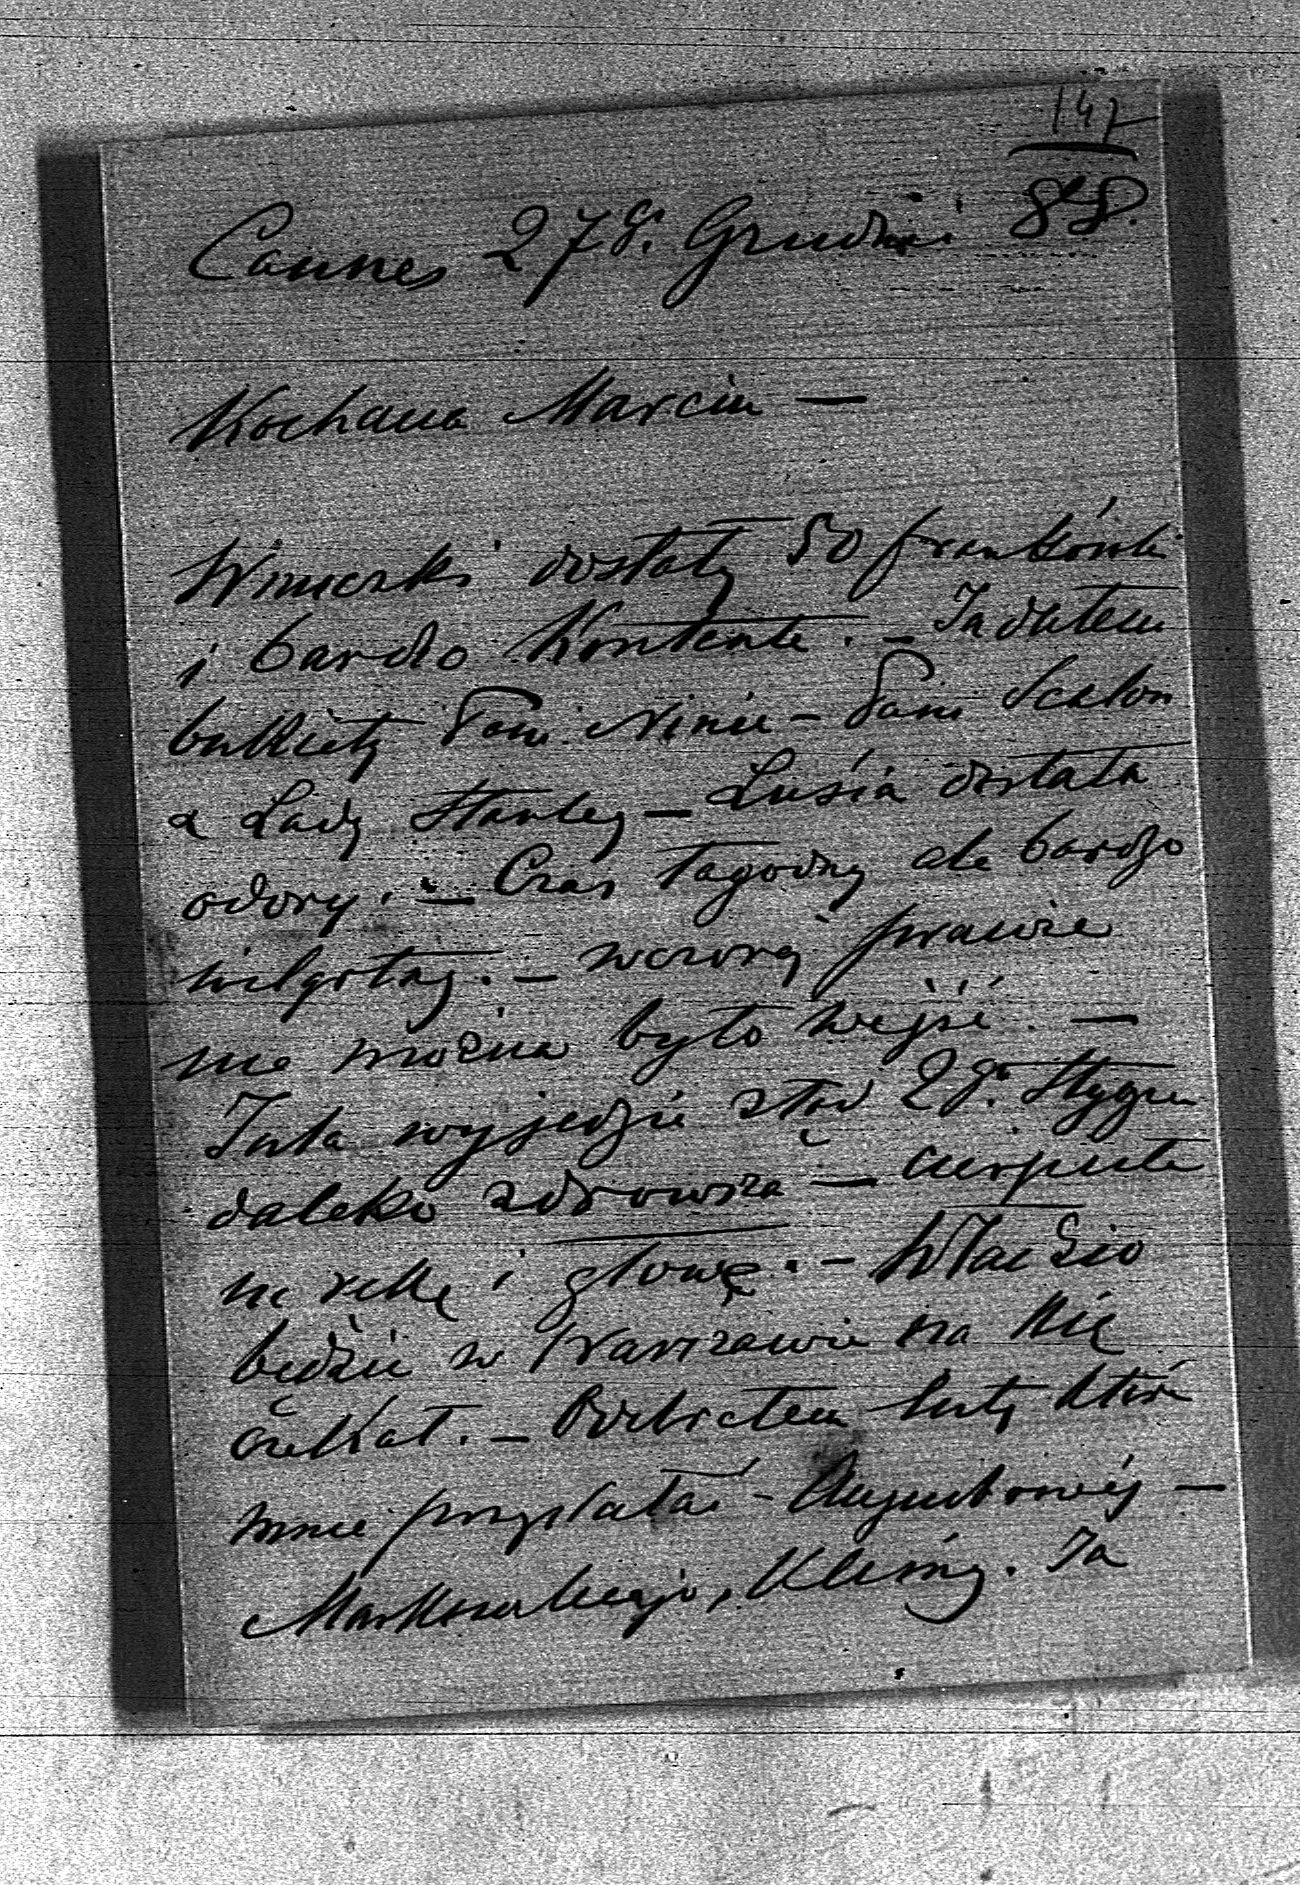 147
Cannes 27go Grudnia 88.
Kochana Marciu —
Wnuczki dostały 50 frankówki
i bardzo kontente. — Ja dałem
bukiety Pani Ninie — Pani
a Lady Stanley — Lusia dostała
odory. — Czas łagodny ale bardzo
wilgotny. — wczoraj prawie
nie można było wyjść. —
Jula wyjedzie ztąd 2go Stycznia
daleko zdrowsza — cierpiała
na rękę i głowę. — Władzio
będzie w Warszawie na Nię
czekał. — Odebrałem listy które
mnie przysłałaś — Augustowéj —
Markowskiego, Ja